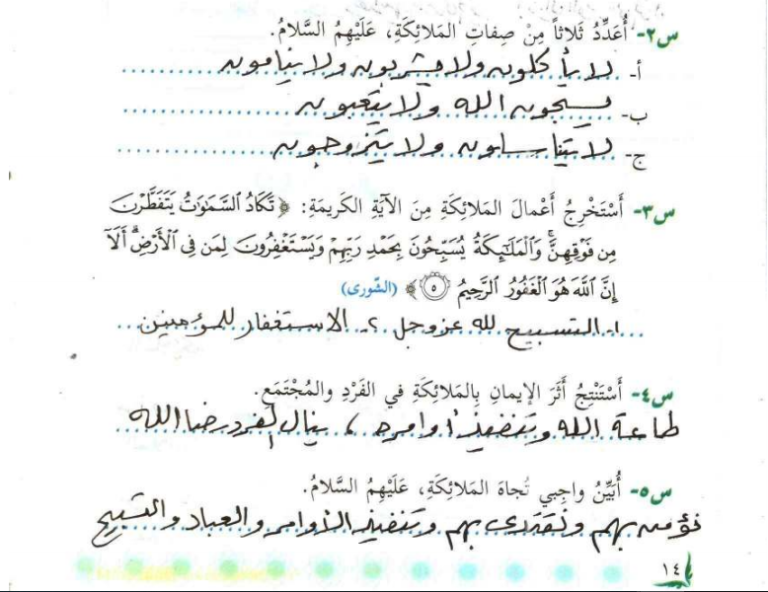 س٢- أُعَدِّدُ ثَلاثاً مِنْ صِفاتِ المَلائِكَةِ، عَلَيْهِمُ السَّلامُ.
أ- لا يأكلون ولا يشربون ولا ينامون
ب- يسبحون الله ولا يتعبون
ج- لا يتناسلون ولا يتزوجون
س٣- أَسْتَخْرِجُ أَعْمالَ المَلائِكَةِ مِنَ الآيَةِ الكَريمَةِ: ﴿ تَكَادُ ٱلسَّمَٰوَٰتُ يَتَفَطَّرْنَ
مِن فَوْقِهِنَّۚ وَٱلْمَلَٰٓئِكَةُ يُسَبِّحُونَ بِحَمْدِ رَبِّهِمْ وَيَسْتَغْفِرُونَ لِمَن فِى ٱلْأَرْضِۗ أَلَآ
إِنَّ ٱللَّهَ هُوَ ٱلْغَفُورُ ٱلرَّحِيمُ ٥ ﴾ (الشّورى)
١- التسبيح لله عزوجل ٢- الاستغفار للمؤمنين
س٤- أَسْتَنْتِجُ أَثَرَ الإيمانِ بِالمَلائِكَةِ في الفَرْدِ والمُجْتَمَعِ.
طاعة الله وتنفيذ أوامره ، ينال الفرد رضا الله
س٥- أُبَيِّنُ واجِبي تُجاهَ المَلائِكَةِ، عَلَيْهِمُ السَّلامُ.
نؤمن بهم ونقتدي بهم وتنفيذ الأوامر والعباد والتسبيح
١٤